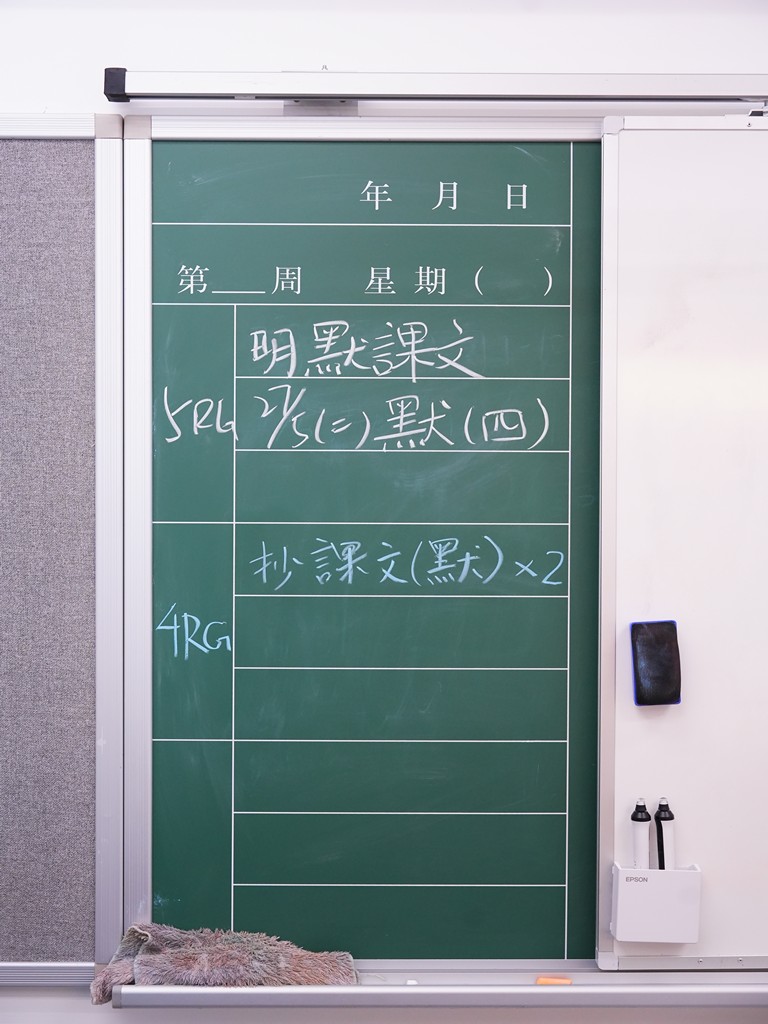 年 月 日
第___周 星期( )
明默課文
5RG 27/5(二)默(四)
抄課文(默)×2
4RG
EPSON